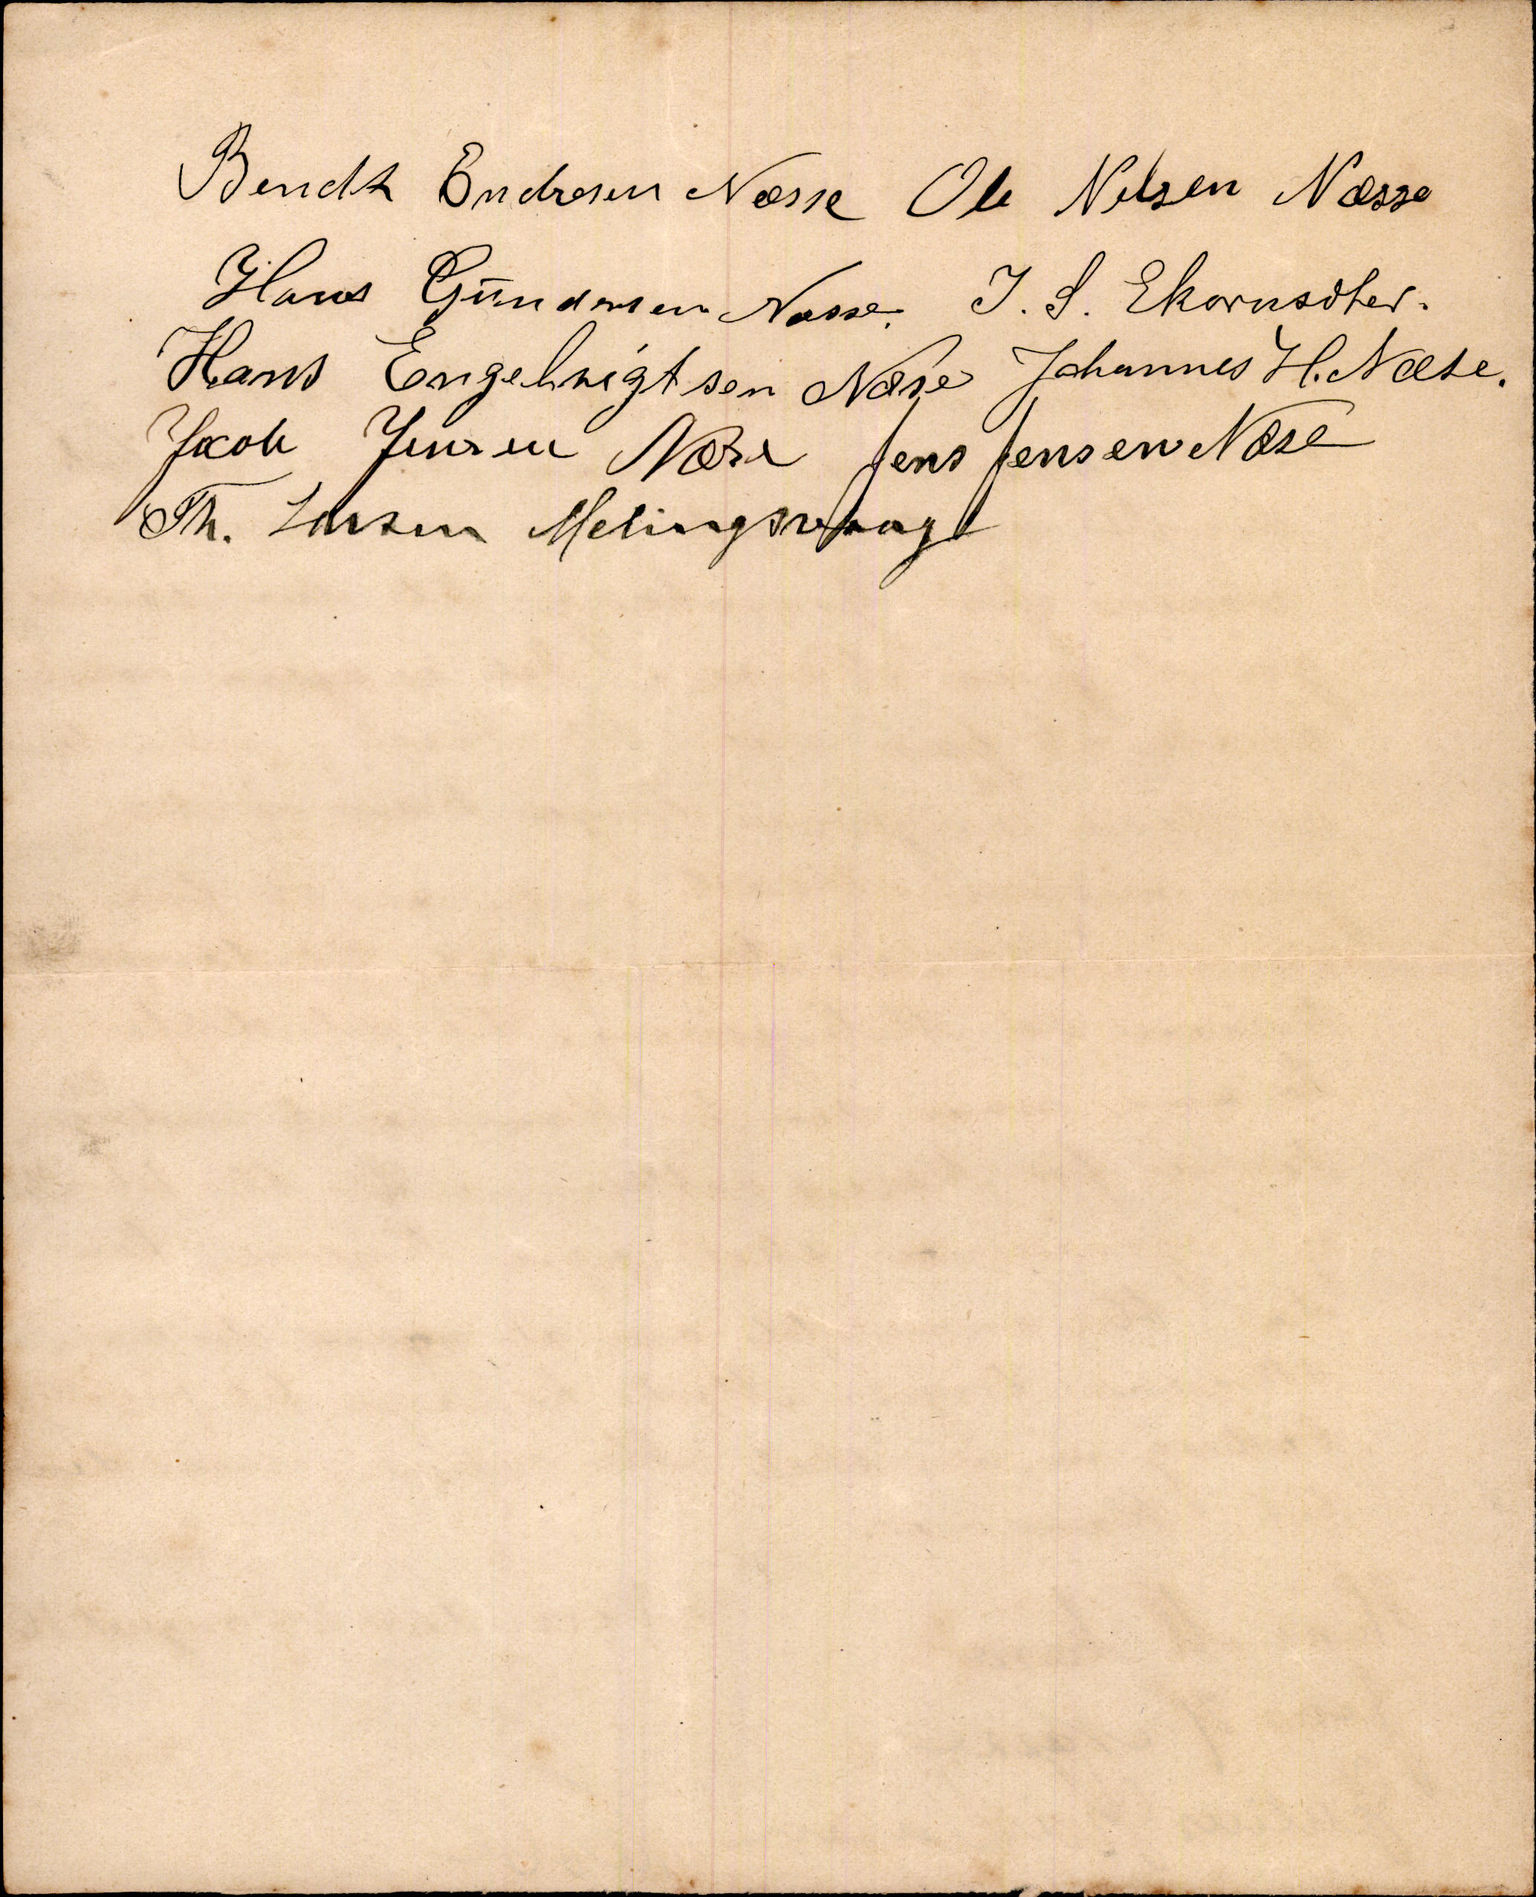 Bendt Endresen Næsse Ole Nilsen Næsse
Hans Gūndersen Næsse. J. S. Ekornsæter.
Hans Engebrigtsen Næse Johannes H. Næse.
Jacob Jensen Næse Jens Jensen Næse
Th. Larsen Melingsvaag